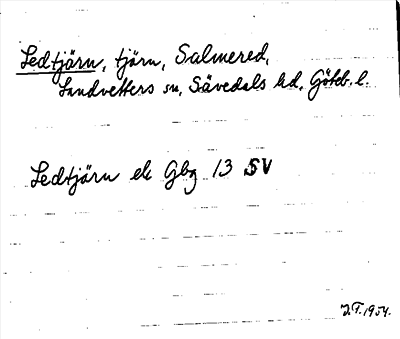 Ledtjärn, tjärn, Salmered,
Landvetters sn, Sävedals hd, Göteb. l.
Ledtjärn ek Gbg 13 SV
J.F. 1954.